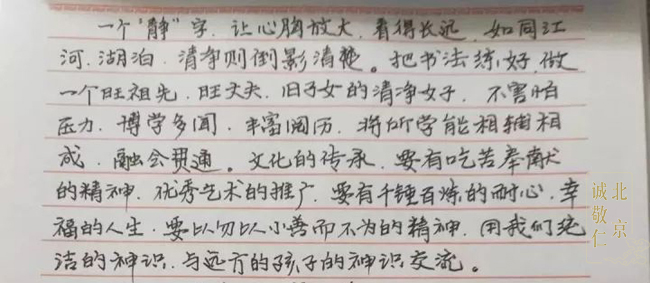 一个“静”字，让心胸放大，看得长远，如同江
河、湖泊，清净则倒影清楚。把书法练好，做
一个旺祖先，旺丈夫，旺子女的清净女子，不害怕
压力，博学多闻，丰富阅历，将所学能相辅相
成，融会贯通。文化的传承，要有吃苦奉献
的精神，优秀艺术的推广，要有千锤百炼的耐心，幸
福的人生，要以勿以小善而不为的精神，用我们纯
洁的神识，与远方的孩子的神识交流。
北京
诚敬仁